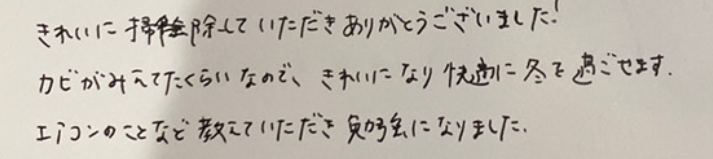 きれいに掃除していただきありがとうございました!
カビがみえてたくらいなので、きれいになり快適に冬を過ごせます.
エアコンのことなど教えていただき勉強になりました.